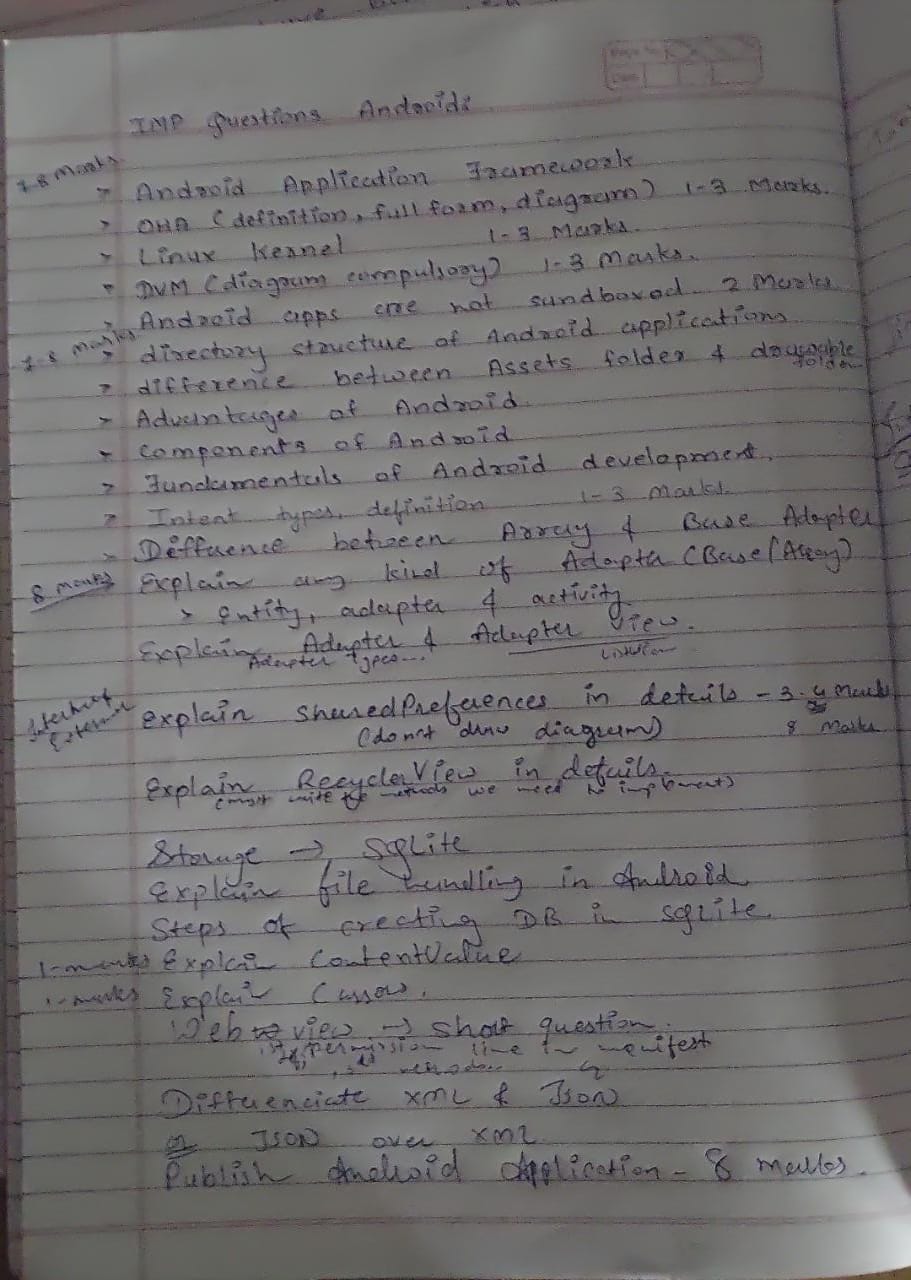 Page No.
Date
IMP Questions Android:
7-8 Marks
> Android Application Framework
> OHA (definition, full form, diagram) 1-3 Marks.
> Linux Kernel 1-3 Marks.
> DVM (diagram compulsory) 1-3 Marks.
> Android apps are not sandboxed. 2 Marks
7-8 marks > directory structure of Android applications
> difference between Assets folder & drawable folder
> Advantages of Android
> Components of Android
> Fundamentals of Android development.
> Intent types, definition 1-3 marks.
> Difference between Array & Base Adapter
8 marks Explain any kind of Adapter (Base/Array)
> entity, adapter & activity
Explain Adapter & Adapter View.
Adapter types... ListView
Internal
External
explain sharedPreferences in details - 3-4 Marks
(do not draw diagram) 8 Marks
Explain RecyclerView in details.
(must write the methods we need to implements)
Storage → SQLite
Explain file handling in Android
Steps of creating DB in sqlite.
1-marks Explain ContentValue
1-marks Explain Cussor.
Web view → short question.
permission line in manifest
Differenciate XML & Json
JSON over XML
Publish Android Application - 8 marks.